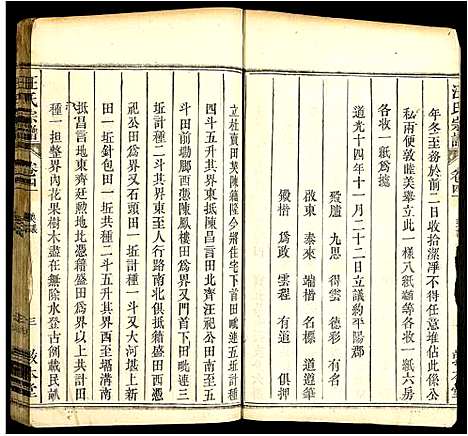 汪氏宗譜
卷四
年冬至務於前二日收拾潔淨不得任意堆佔此係公
私兩便敦睦美舉立此一樣八紙嗣後
各收一紙爲據
道光十四年十一月二十二日立議約平陽郡
殿臚 九思 得雲 德彩 有名
啟東 泰來 端楷 名標 道遵筆
殿楷 爲政 雲程 有道 俱押
立杜賣田契陳籍隆今將住宅下首田毗連五坵計種
四斗五升其界東抵陳昌言田北齊汪祀公田南至五
斗田前塥腳西憑陳鳳樓田爲界又門首田毗連三
坵計種二斗其界東至人行路南北俱抵籍盛田西憑
祀公田爲界又石頭田一坵計種一斗又大河堪上新
田一坵共田一坵共種二斗五升其界西至塥溝南
抵昌言地東齊廷勲地北憑籍盛田爲界以上共計田
種一担整界內花果樹木盡在無除水登古例載民
汪氏宗譜
卷四
三
敦本堂